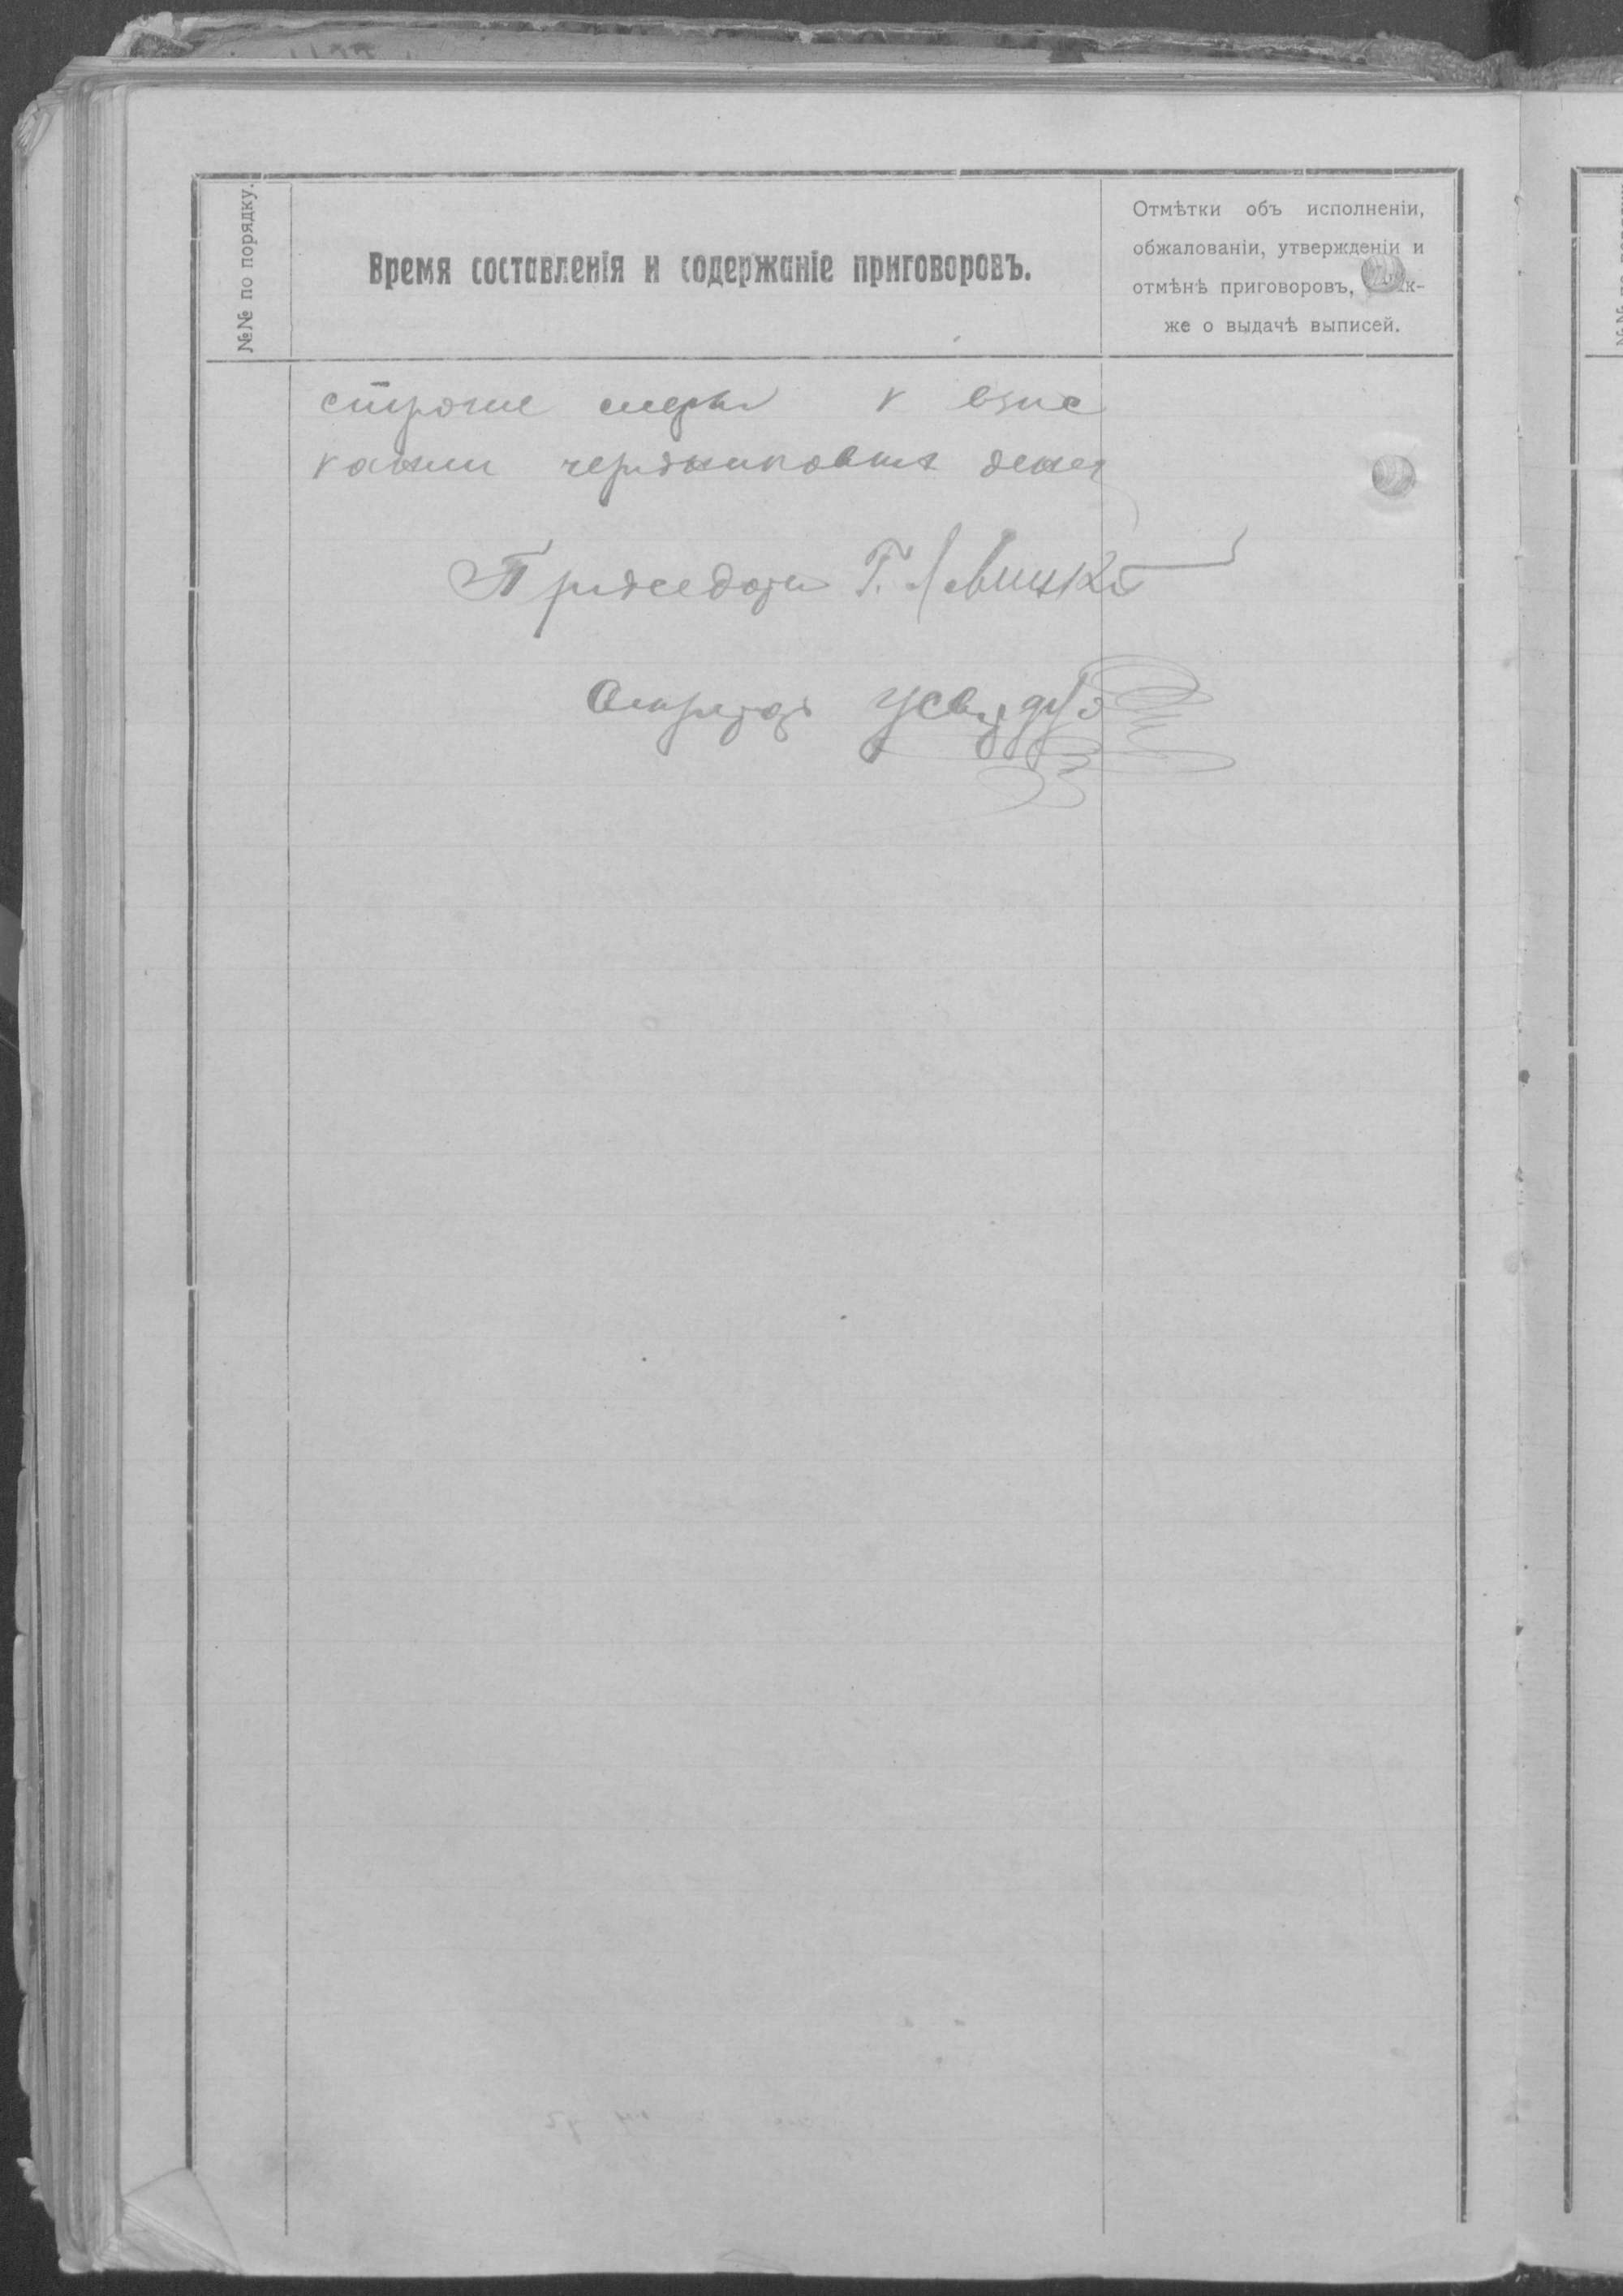 №№ по порядку.
Время составленія и содержаніе приговоровъ.
Отмѣтки объ исполненіи,
обжалованіи, утвержденіи и
отмѣнѣ приговоровъ, ак-
же о выдачѣ выписей.
строгие меры к взыс
кании денег
Председатель Г. Левицкий
Секретарь